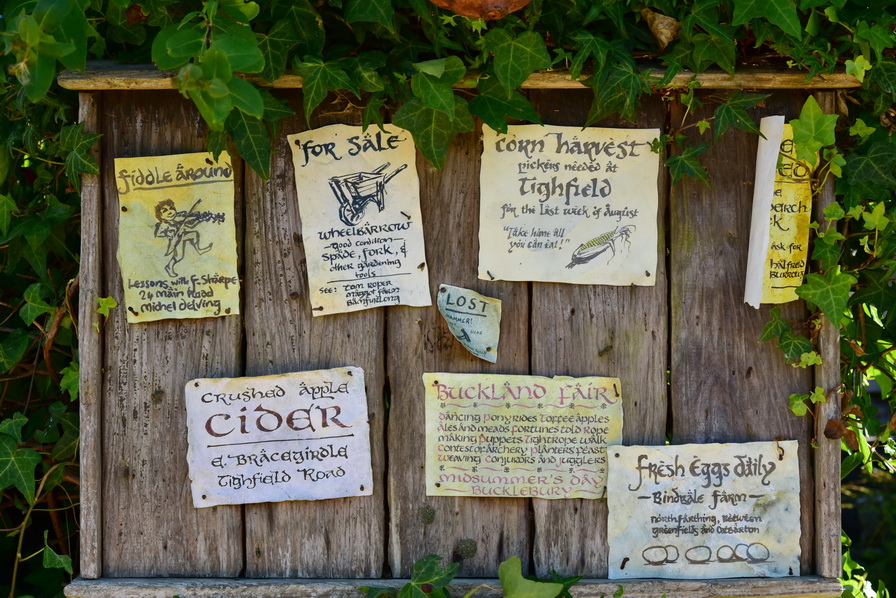 Fiddle Around
Lessons with F. Sharpe
24 Main Road
Michel Delving
For Sale
Wheelbarrow
Good condition
Spade, Fork, &
other gardening
tools
See: Tom Roper
Maggot Farm
Bamfurlong
Corn Harvest
pickers needed at
Tighfield
for the last week of August
"Take home all
you can eat!"
ask for
LOST
HAMMER!
Crushed Apple
CIDER
E. Bracegirdle
Tighfield Road
Buckland Fair
Dancing Pony rides Toffee apples
Ales and Meads Fortunes told Rope
making Puppets Tightrope walk
Contest of Archery Planters feast
Weaving Conjurors and Jugglers
Midsummer's Day
Bucklebury
Fresh Eggs daily
Bindbale Farm
Northfarthing, Between
Greenfields and Oatbarton